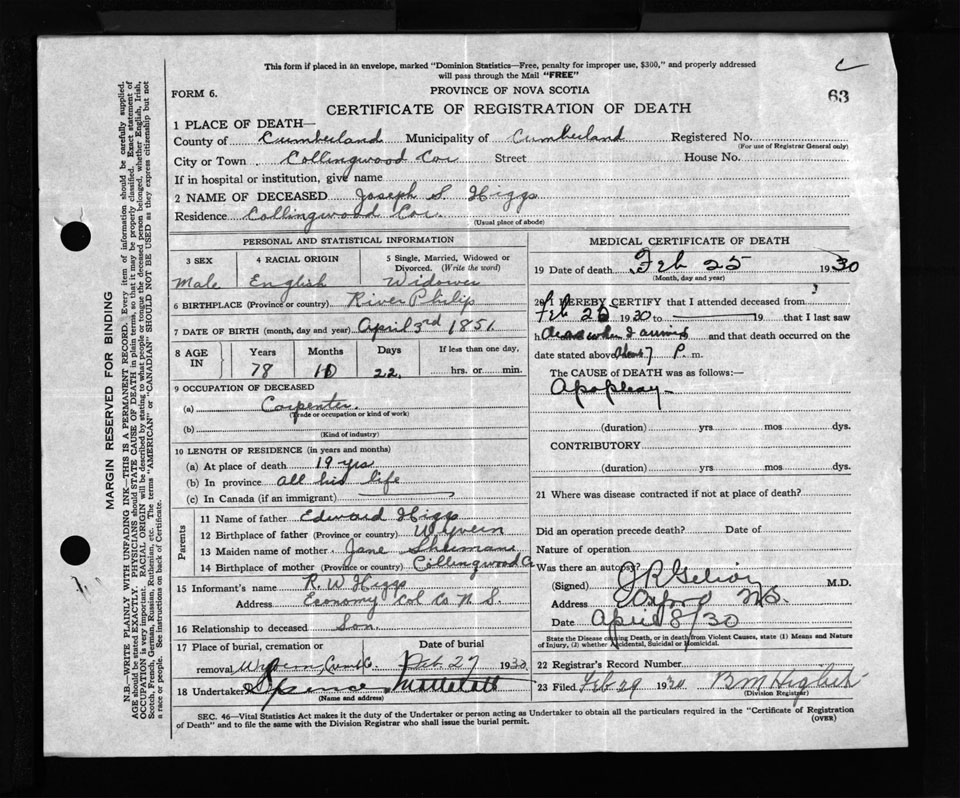 This form if placed in an envelope, marked "Dominion Statistics—Free, penalty for improper use, $300," and properly addressed
will pass through the Mail "FREE"
FORM 6.
PROVINCE OF NOVA SCOTIA
63
CERTIFICATE OF REGISTRATION OF DEATH
1 PLACE OF DEATH—
County of Cumberland Municipality of Cumberland Registered No.
(For use of Registrar General only)
City or Town Collingwood Cor Street House No.
If in hospital or institution, give name
2 NAME OF DECEASED Joseph S. Higgs
Residence Collingwood Cor.
(Usual place of abode)
PERSONAL AND STATISTICAL INFORMATION
3 SEX 4 RACIAL ORIGIN 5 Single, Married, Widowed or Divorced. (Write the word)
Male English Widower
6 BIRTHPLACE (Province or country) River Philip
7 DATE OF BIRTH (month, day and year) April 3rd 1851
8 AGE IN Years Months Days If less than one day,
78 10 22 hrs. or min.
9 OCCUPATION OF DECEASED
(a) Carpenter.
(Trade or occupation or kind of work)
(b)
(Kind of industry)
10 LENGTH OF RESIDENCE (in years and months)
(a) At place of death 19 yrs
(b) In province all his life
(c) In Canada (if an immigrant)
Parents
11 Name of father Edward Higgs
12 Birthplace of father (Province or country) Wyvern
13 Maiden name of mother Jane
14 Birthplace of mother (Province or country) Collingwood
15 Informant's name R. W Higgs
Address Economy Col Co N. S.
16 Relationship to deceased Son
17 Place of burial, cremation or removal Wyvern, Date of burial Feb 27 1930
18 Undertaker
(Name and address)
MEDICAL CERTIFICATE OF DEATH
19 Date of death Feb 25 1930
(Month, day and year)
20 I HEREBY CERTIFY that I attended deceased from
Feb 26 1930 to 19 that I last saw
h dead when I arrived and that death occurred on the
date stated above about 7 P. m.
The CAUSE of DEATH was as follows:—
Apoplexy
(duration) yrs mos dys.
CONTRIBUTORY
(duration) yrs mos dys.
21 Where was disease contracted if not at place of death?
Did an operation precede death? Date of
Nature of operation
Was there an autopsy?
(Signed) M.D.
Address Oxford NS.
Date April 8/30
State the Disease causing Death, or in death from Violent Causes, state (1) Means and Nature
of Injury, (2) whether Accidental, Suicidal or Homicidal.
22 Registrar's Record Number
23 Filed Feb 29 1930 B M
(Division Registrar)
SEC. 46—Vital Statistics Act makes it the duty of the Undertaker or person acting as Undertaker to obtain all the particulars required in the "Certificate of Registration
of Death" and to file the same with the Division Registrar who shall issue the burial permit.
(OVER)
MARGIN RESERVED FOR BINDING
N.B.—WRITE PLAINLY WITH UNFADING INK—THIS IS A PERMANENT RECORD. Every item of information should be carefully supplied.
AGE should be stated EXACTLY. PHYSICIANS should STATE CAUSE OF DEATH in plain terms, so that it may be properly classified. Exact statement of
OCCUPATION is very important. RACIAL ORIGIN will be described by stating to what people or tongue the deceased person belonged, whether English, Irish,
Scotch, French, German, Russian, Ruthenian, etc. The terms "AMERICAN" or "CANADIAN" SHOULD NOT BE USED as they express citizenship but not
a race or people. See instructions on back of Certificate.